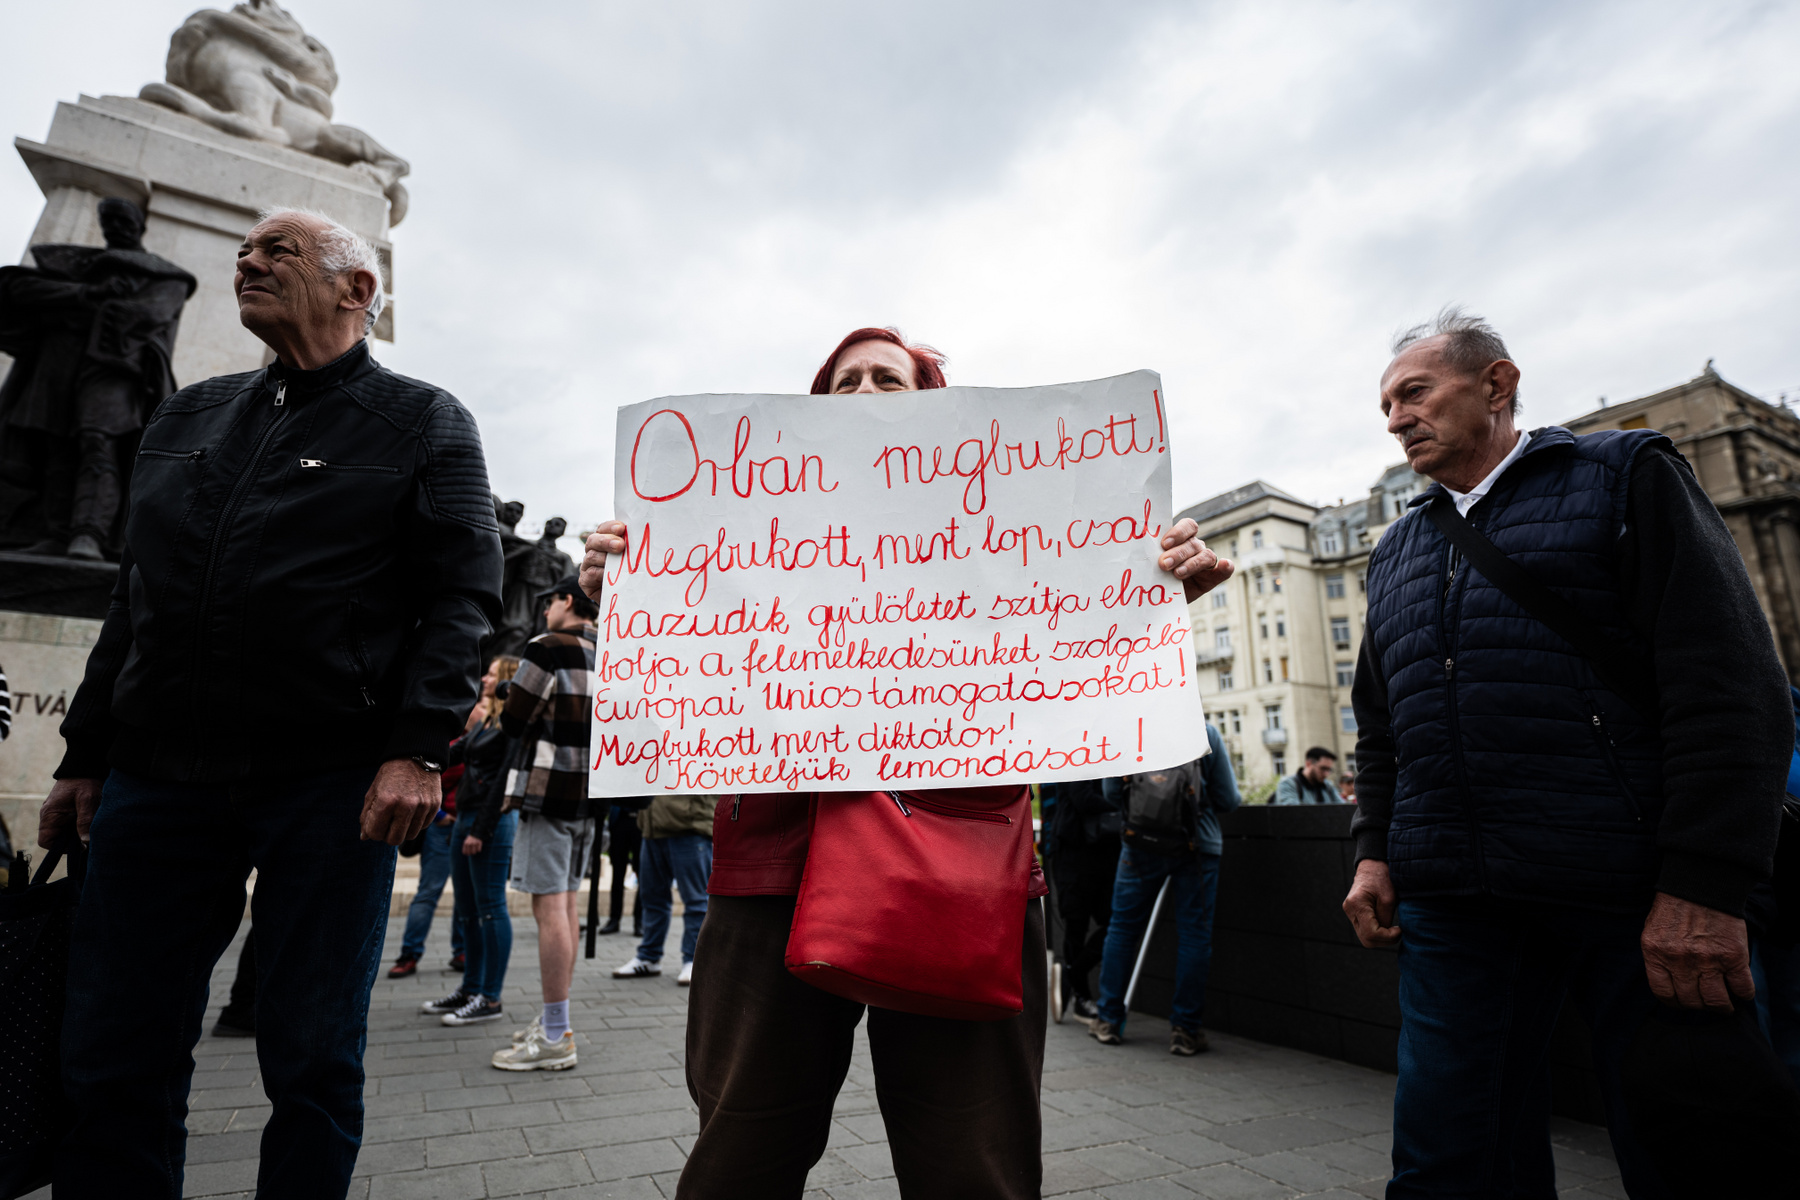 Orbán megbukott!
Megbukott, mert lop, csal
hazudik gyűlöletet szítja elra-
bolja a felemelkedésünket szolgáló
Európai Uniós támogatásokat!
Megbukott mert diktátor!
Követeljük lemondását!
TVÁ